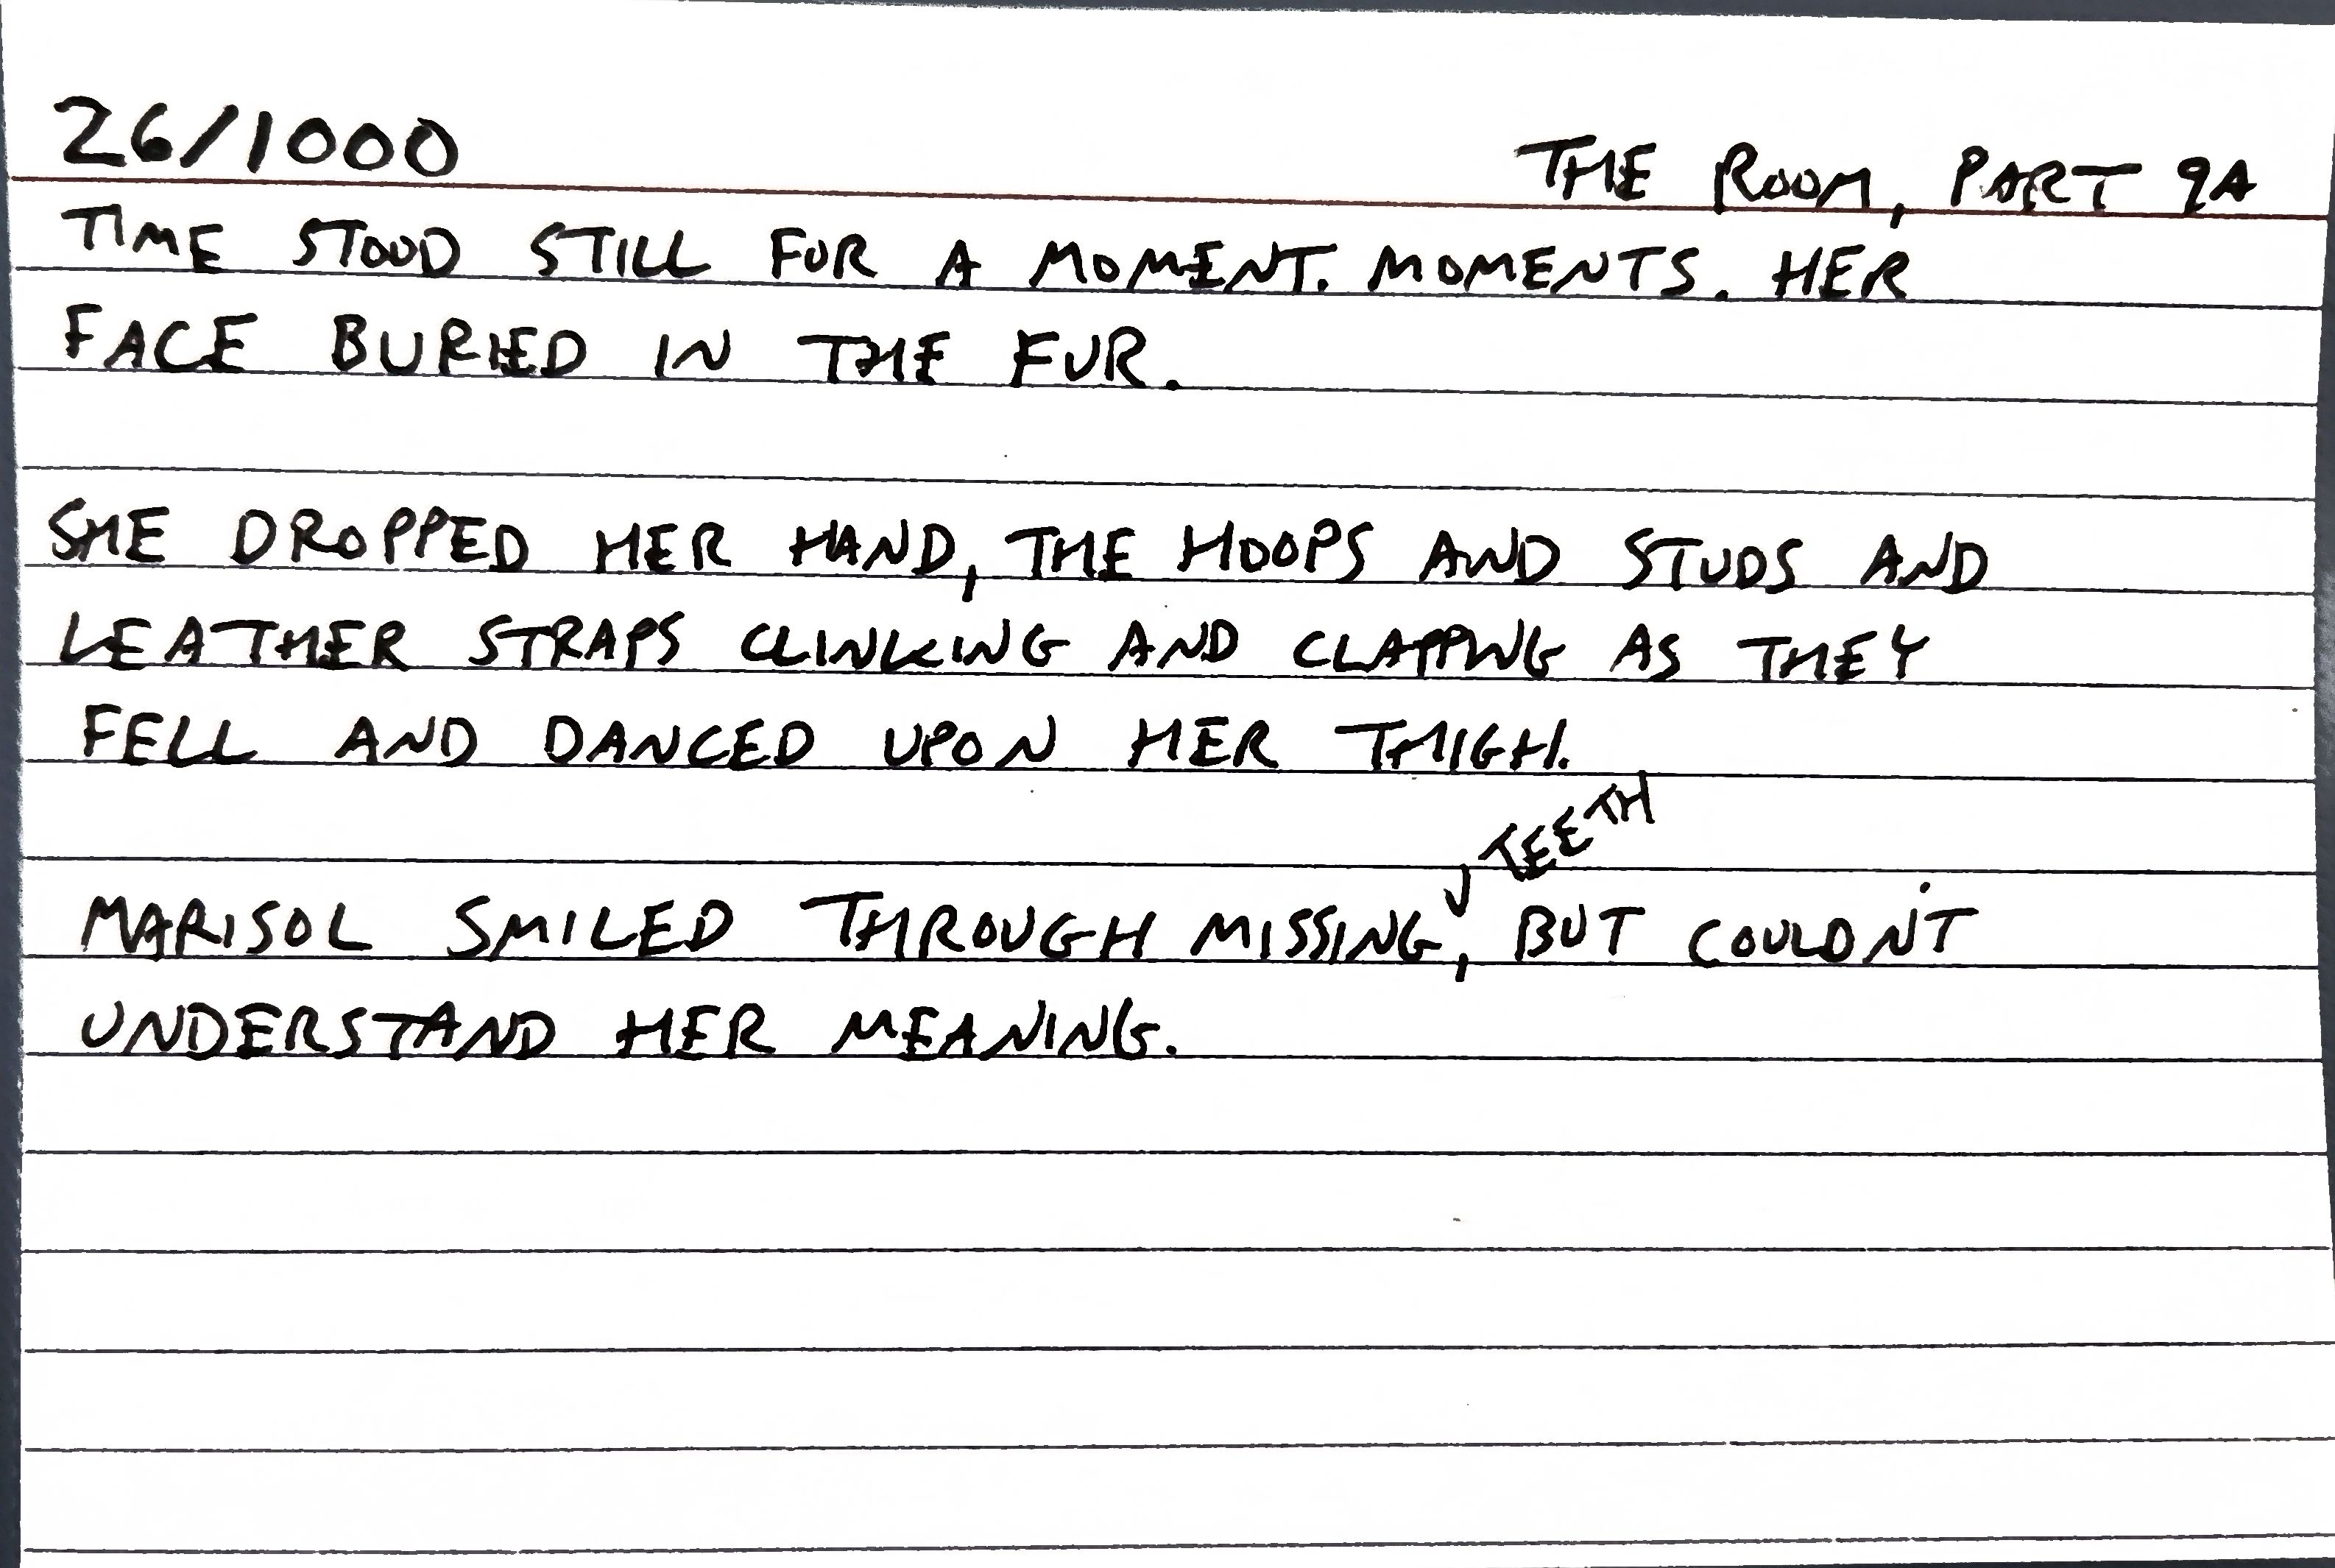 26/1000
THE ROOM, PART 9A
TIME STOOD STILL FOR A MOMENT. MOMENTS. HER
FACE BURIED IN THE FUR.
SHE DROPPED HER HAND, THE HOOPS AND STUDS AND
LEATHER STRAPS CLINKING AND CLAPPING AS THEY
FELL AND DANCED UPON HER THIGH.
TEETH
MARISOL SMILED THROUGH MISSING, BUT COULDN'T
UNDERSTAND HER MEANING.